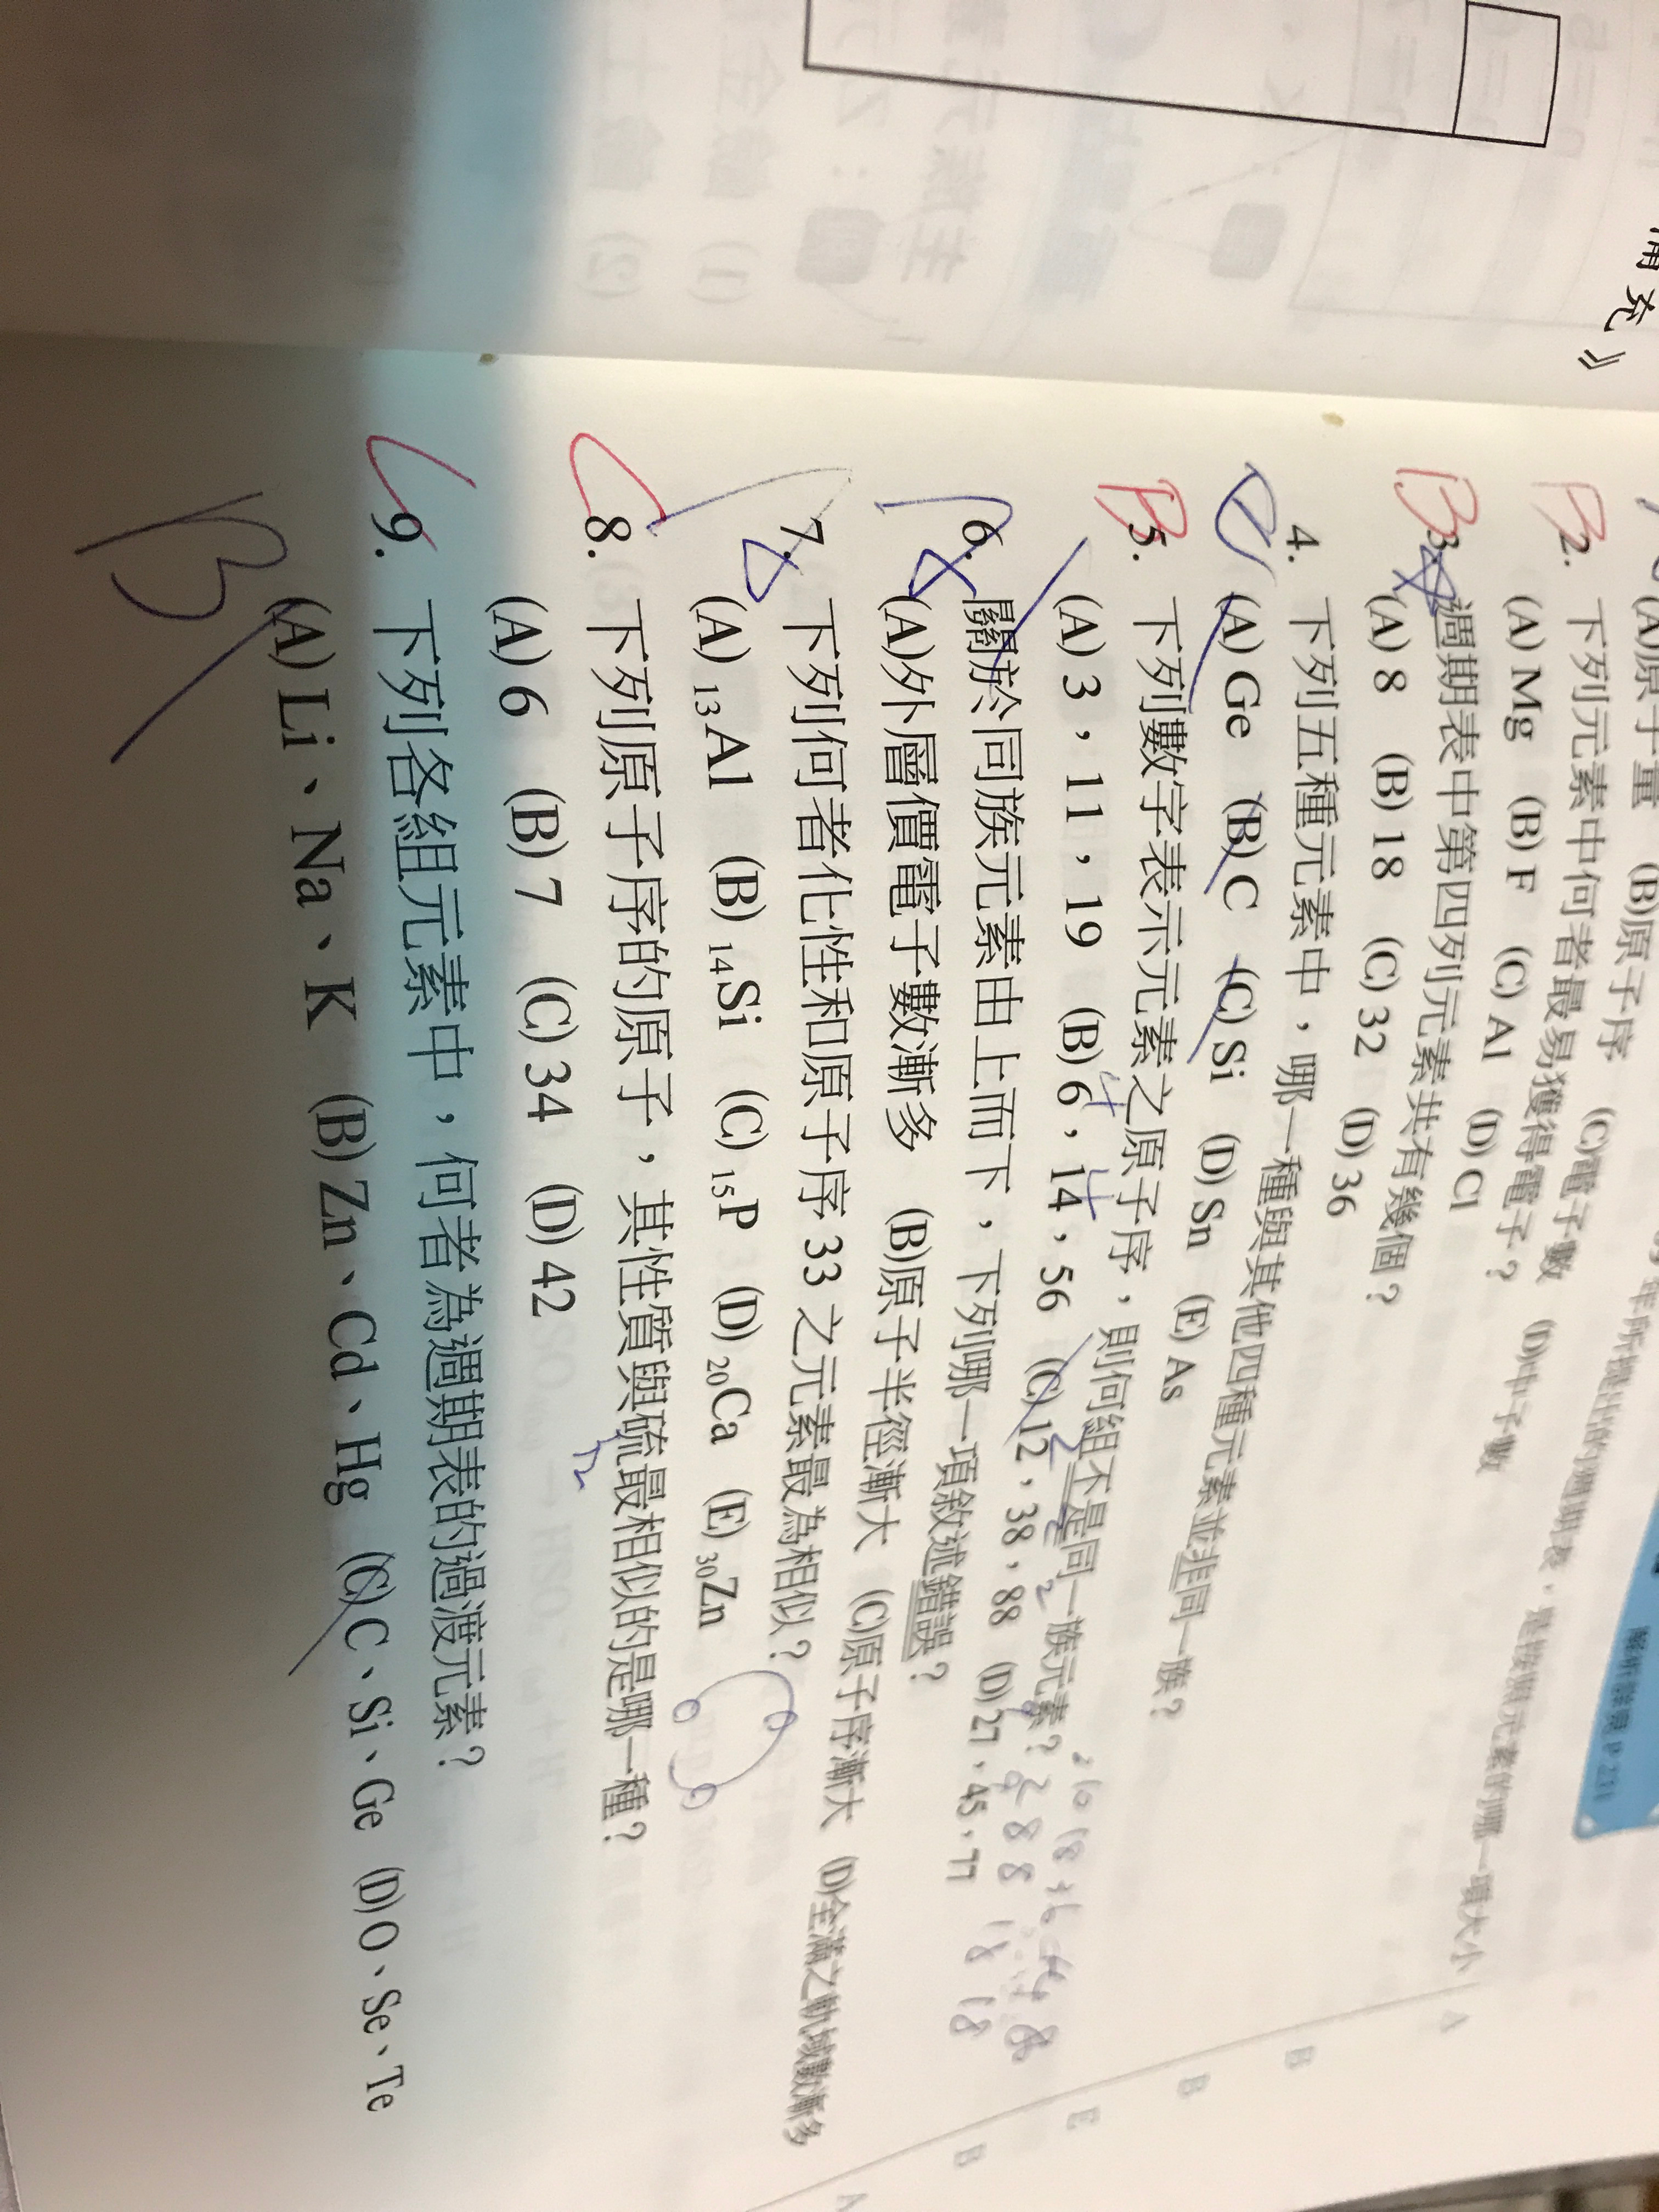 補充》
解析詳見 P.231
(A)原子量 (B)原子序 (C)電子數 (D)中子數
2. 下列元素中何者最易獲得電子？
(A) Mg (B) F (C) Al (D) Cl
3. 週期表中第四列元素共有幾個？
(A) 8 (B) 18 (C) 32 (D) 36
4. 下列五種元素中，哪一種與其他四種元素並非同一族？
(A) Ge (B) C (C) Si (D) Sn (E) As
5. 下列數字表示元素之原子序，則何組不是同一族元素？
(A) 3，11，19 (B) 6，14，56 (C) 12，38，88 (D) 27，45，77
6. 關於同族元素由上而下，下列哪一項敘述錯誤？
(A)外層價電子數漸多 (B)原子半徑漸大 (C)原子序漸大 (D)全滿之軌域數漸多
7. 下列何者化性和原子序 33 之元素最為相似？
(A) 13Al (B) 14Si (C) 15P (D) 20Ca (E) 30Zn
8. 下列原子序的原子，其性質與硫最相似的是哪一種？
(A) 6 (B) 7 (C) 34 (D) 42
9. 下列各組元素中，何者為週期表的過渡元素？
(A) Li、Na、K (B) Zn、Cd、Hg (C) C、Si、Ge (D) O、Se、Te
B